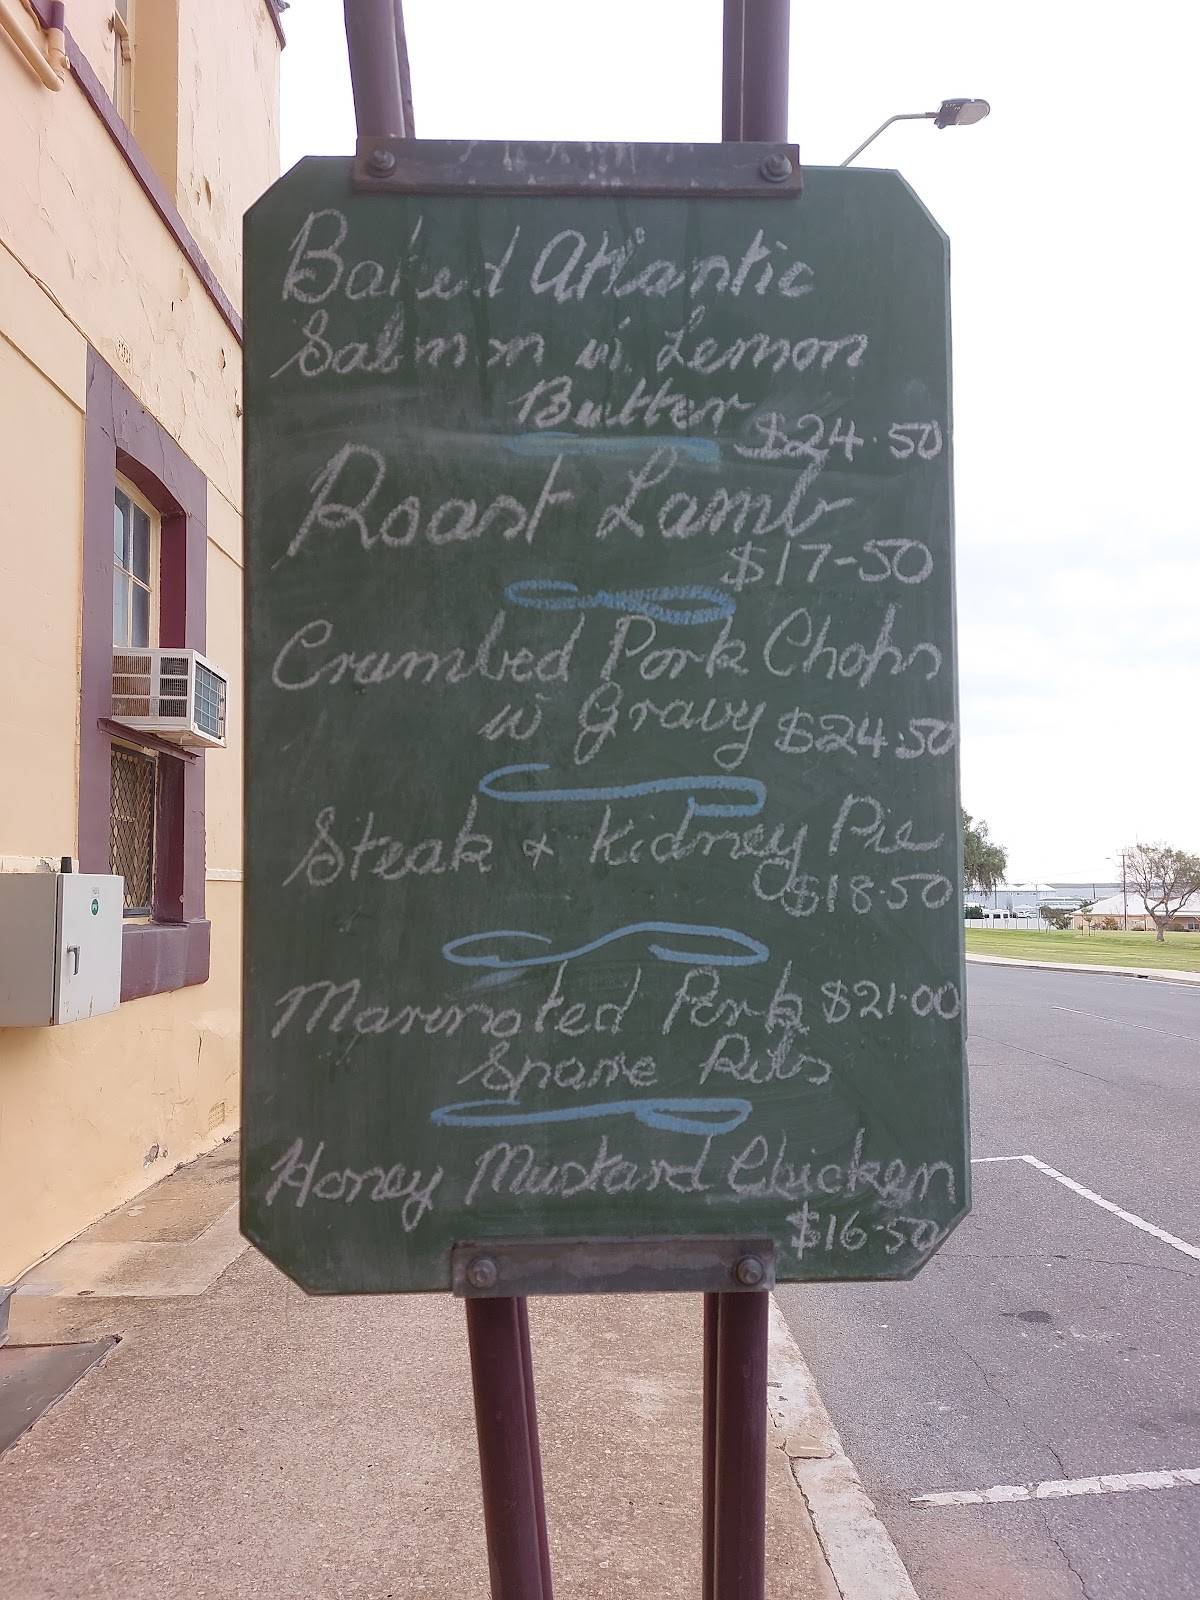 Baked Atlantic
Salmon w Lemon
Butter $24.50
Roast Lamb
$17-50
Crumbed Pork Chops
w Gravy $24.50
Steak & Kidney Pie
$18.50
Marinated Pork $21.00
Spare Ribs
Honey Mustard Chicken
$16.50